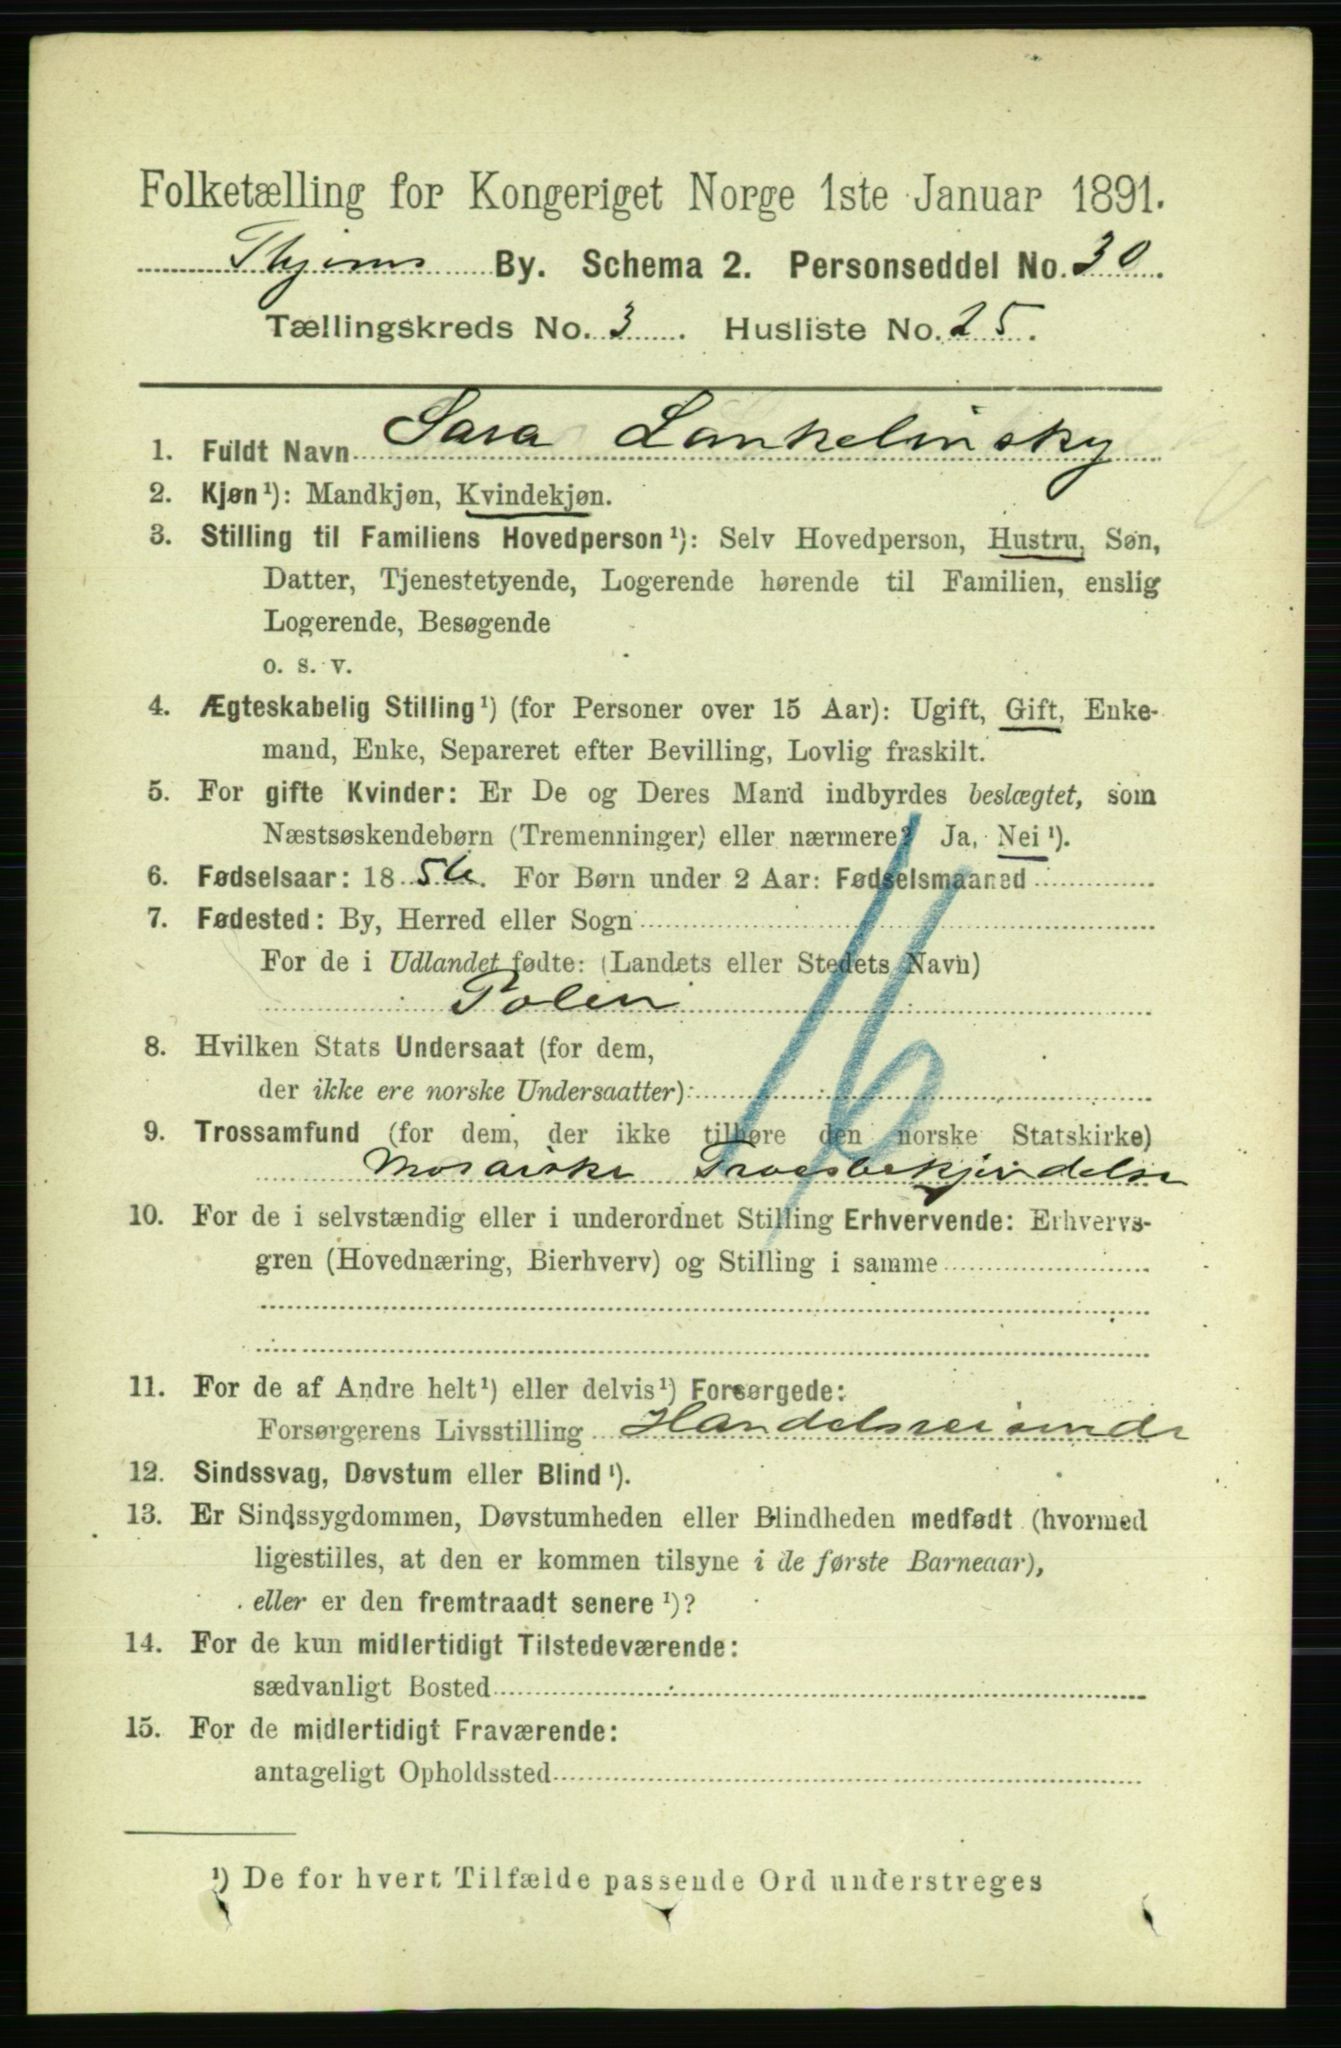 Folketælling for Kongeriget Norge 1ste Januar 1891.
By. Schema 2. Personseddel No. 30.
Tællingskreds No. 3. Husliste No. 25.
1. Fuldt Navn Sara Lankelinsky
2. Kjøn¹): Mandkjøn, Kvindekjøn.
3. Stilling til Familiens Hovedperson¹): Selv Hovedperson, Hustru, Søn,
Datter, Tjenestetyende, Logerende hørende til Familien, enslig
Logerende, Besøgende
o. s. v.
4. Ægteskabelig Stilling¹) (for Personer over 15 Aar): Ugift, Gift, Enke-
mand, Enke, Separeret efter Bevilling, Lovlig fraskilt.
5. For gifte Kvinder: Er De og Deres Mand indbyrdes beslægtet, som
Næstsøskendebørn (Tremenninger) eller nærmere? Ja, Nei¹).
6. Fødselsaar: 1856. For Børn under 2 Aar: Fødselsmaaned
7. Fødested: By, Herred eller Sogn
For de i Udlandet fødte: (Landets eller Stedets Navn)
Polen
8. Hvilken Stats Undersaat (for dem,
der ikke ere norske Undersaatter):
9. Trossamfund (for dem, der ikke tilhøre den norske Statskirke)
Mosaiske Troesbekjendelse
10. For de i selvstændig eller i underordnet Stilling Erhvervende: Erhvervs-
gren (Hovednæring, Bierhverv) og Stilling i samme
11. For de af Andre helt¹) eller delvis¹) Forsørgede:
Forsørgerens Livsstilling Handelsreisende
12. Sindssvag, Døvstum eller Blind¹).
13. Er Sindssygdommen, Døvstumheden eller Blindheden medfødt (hvormed
ligestilles, at den er kommen tilsyne i de første Barneaar),
eller er den fremtraadt senere¹)?
14. For de kun midlertidigt Tilstedeværende:
sædvanligt Bosted
15. For de midlertidigt Fraværende:
antageligt Opholdssted
16
¹) De for hvert Tilfælde passende Ord understreges